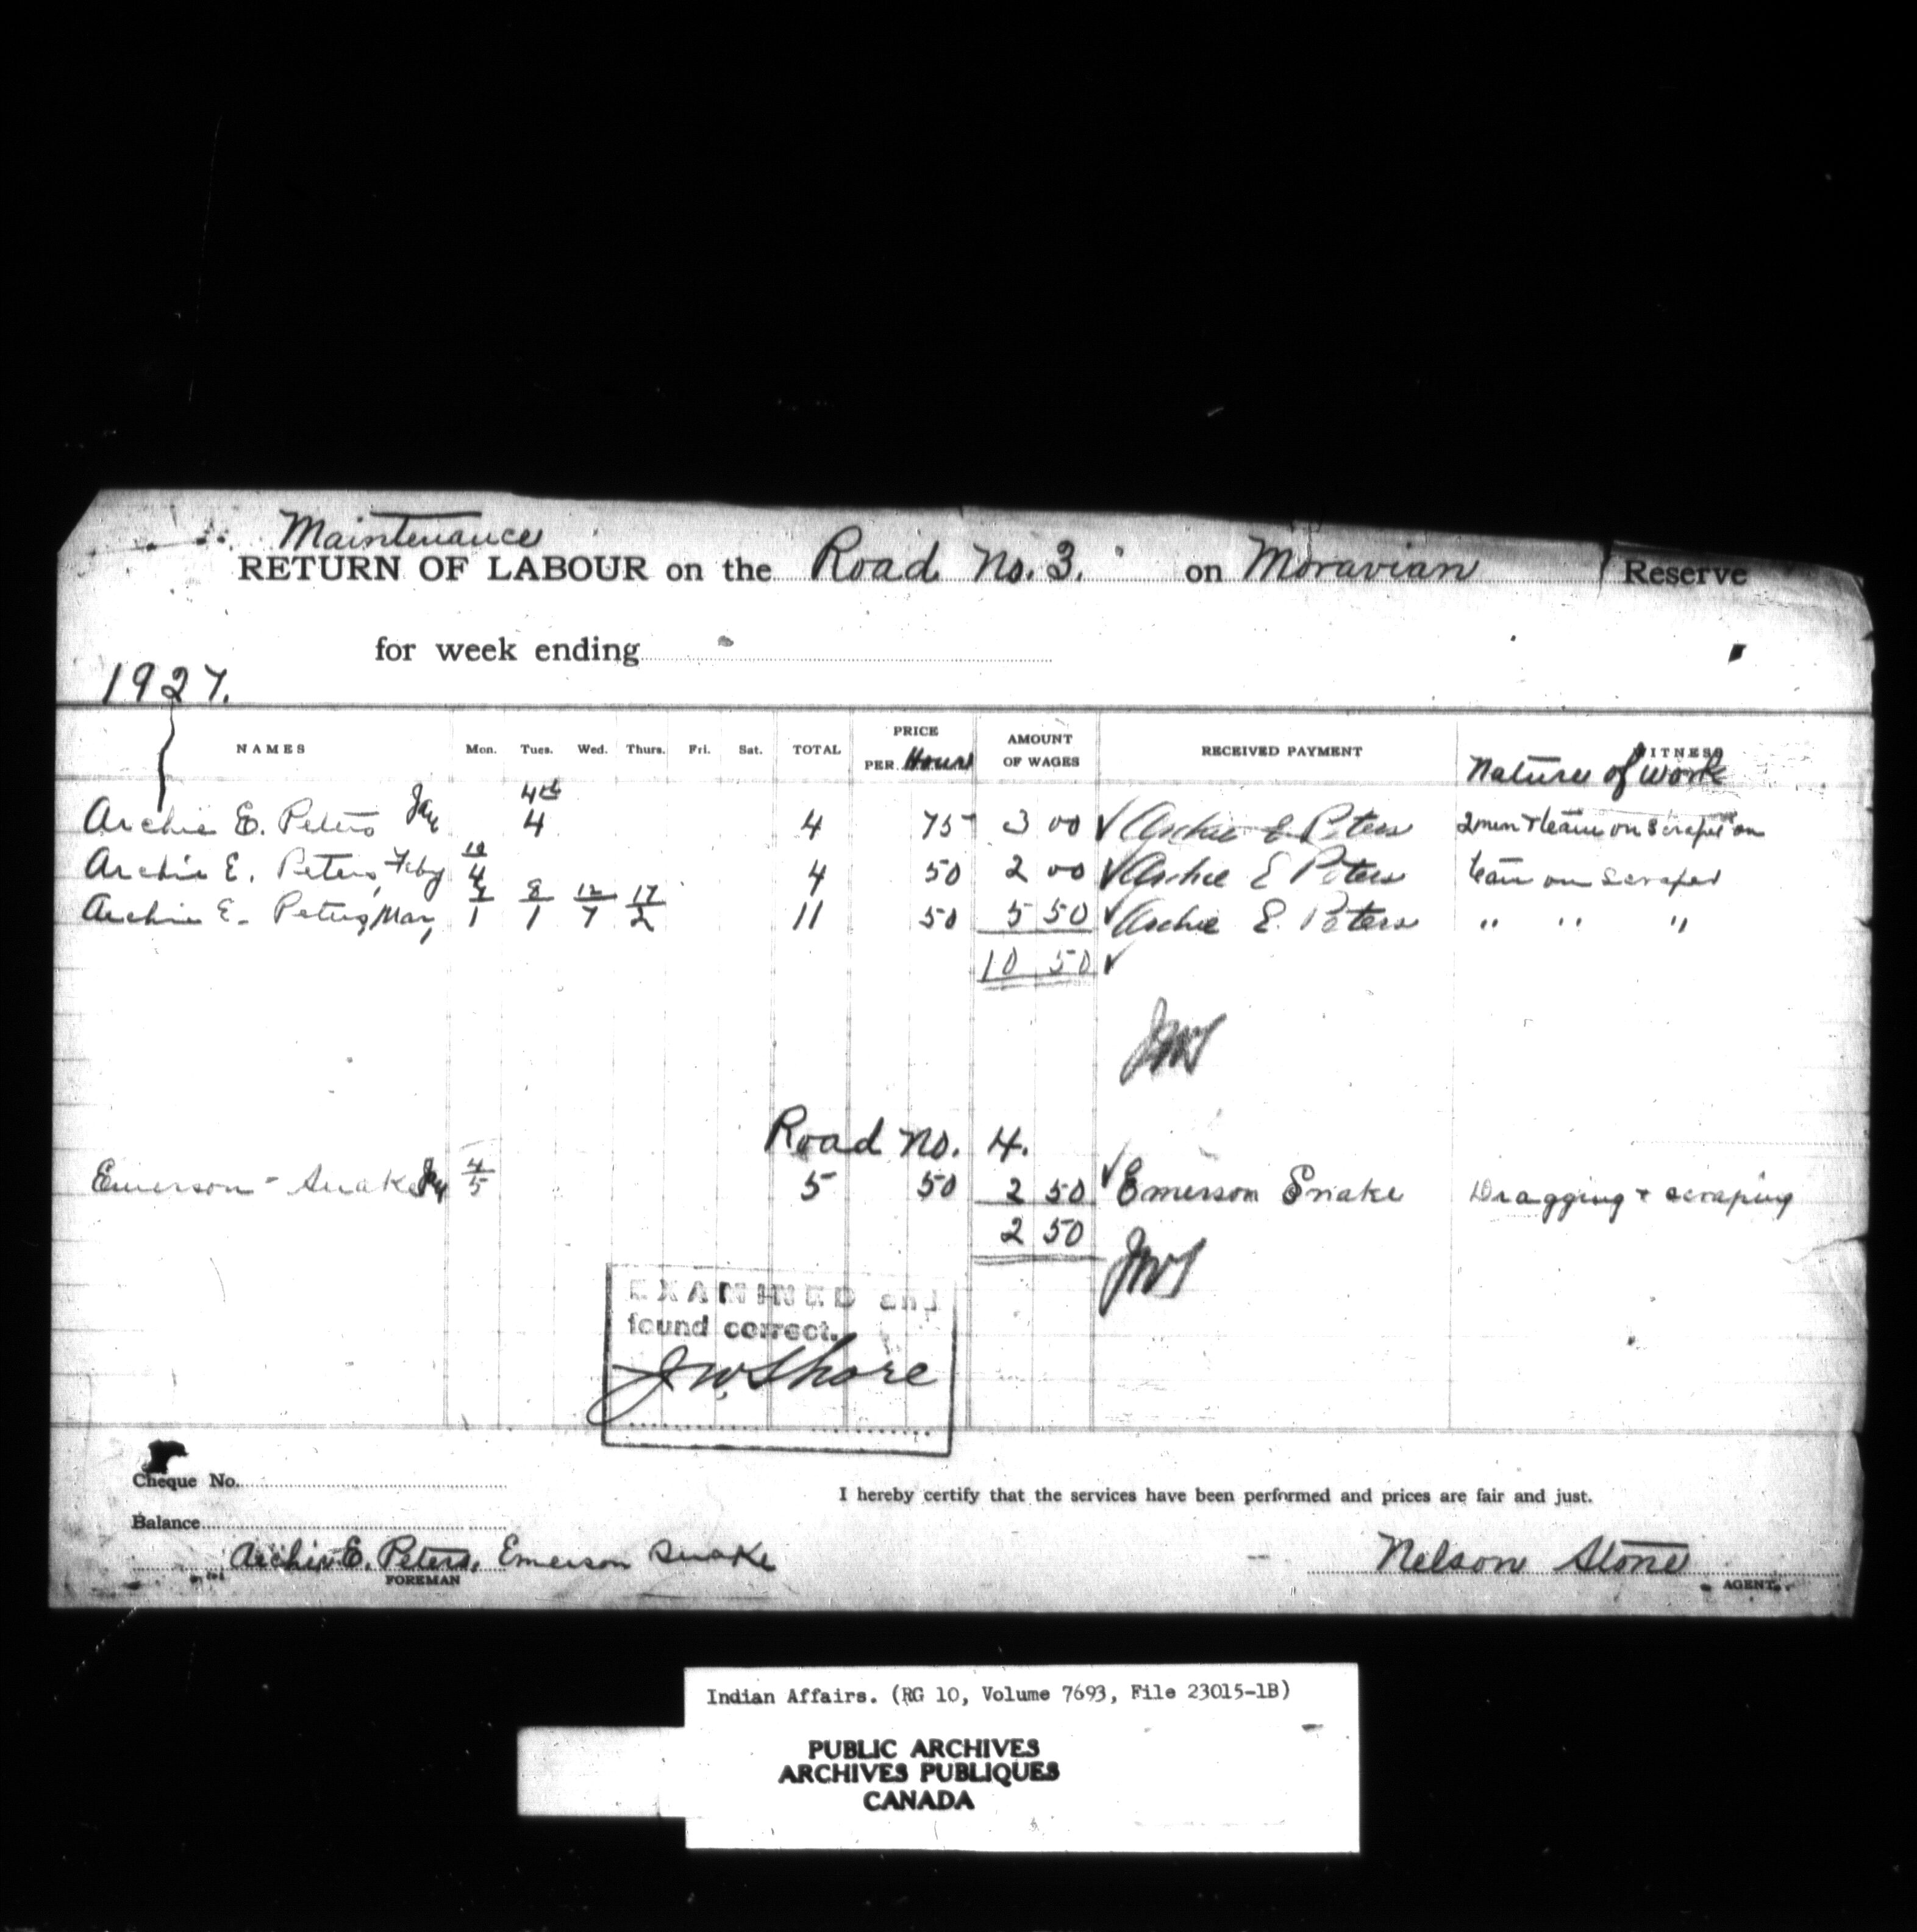 Maintenance
RETURN OF LABOUR on the Road No. 3. on Moravian Reserve
for week ending
1927.
NAMES Mon. Tues. Wed. Thurs. Fri. Sat. TOTAL PRICE PER Hour AMOUNT OF WAGES RECEIVED PAYMENT WITNESS
Nature of Work
4th
Archie E. Peters Jan 4 4 75 3 00 Archie E Peters 2 men & team on scraper on
Archie E. Peters, Feby 4 4 50 2 00 Archie E Peters team on scraper
7 8 12 17
Archie E. Peters, Mar, 1 1 7 2 11 50 5 50 Archie E. Peters " " "
10 50
JWS
Road No. 4.
Emerson - Snake Jan 4/5 5 50 2 50 Emerson Snake Dragging & scraping
2 50
JWS
EXAMINED and
found correct.
J W Shore
Cheque No.
I hereby certify that the services have been performed and prices are fair and just.
Balance
Archie E. Peters, Emerson Snake Nelson Stone
FOREMAN AGENT.
Indian Affairs. (RG 10, Volume 7693, File 23015-1B)
PUBLIC ARCHIVES
ARCHIVES PUBLIQUES
CANADA